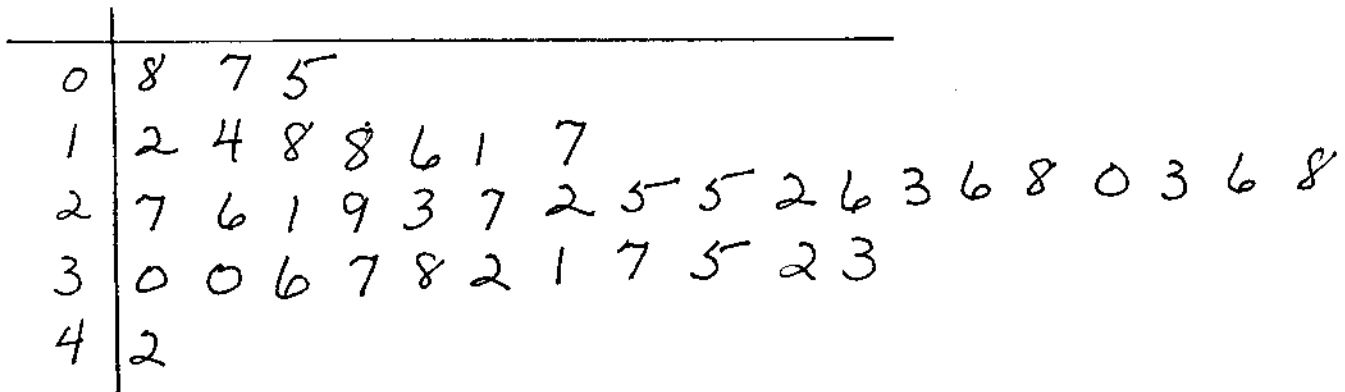 0 8 7 5
1 2 4 8 8 6 1 7
2 7 6 1 9 3 7 2 5 5 2 6 3 6 8 0 3 6 8
3 0 0 6 7 8 2 1 7 5 2 3
4 2